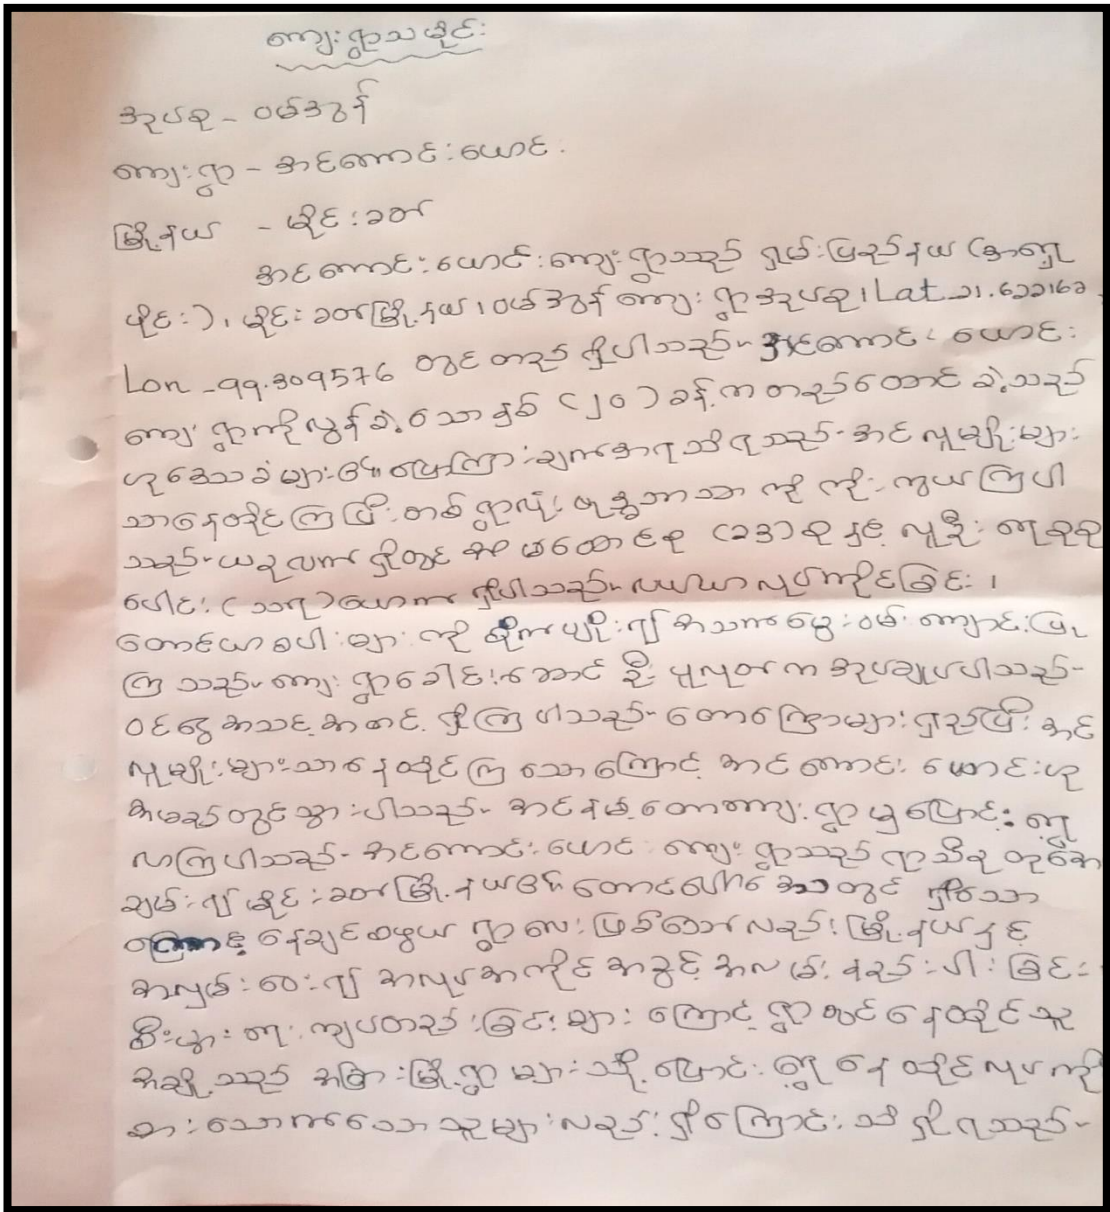 ကျေးရွာသမိုင်း
အုပ်စု - ဝမ်အွန်
ကျေးရွာ - အင်ကောင်းယောင်း
မြို့နယ် - မိုင်းခတ်
အင်ကောင်းယောင်းကျေးရွာသည် ရှမ်းပြည်နယ် (အရှေ့
ပိုင်း)၊ မိုင်းခတ်မြို့နယ်၊ ဝမ်အွန်ကျေးရွာအုပ်စု၊ Lat_21.622162
Lon_99.309576 တွင်တည်ရှိပါသည်။ အင်ကောင်းယောင်း
ကျေးရွာကိုလွန်ခဲ့သောနှစ် (၂၀) ခန့်ကတည်ထောင်ခဲ့သည်
ဟုဒေသခံများ၏ပြောကြားချက်အရသိရသည်။ အင်လူမျိုးများ
သာနေထိုင်ကြပြီး တစ်ရွာလုံးဗုဒ္ဓဘာသာကိုကိုးကွယ်ကြပါ
သည်။ ယခုလက်ရှိတွင် အိမ်ထောင်စု (၁၃)စုနှင့် လူဦးရေစုစု
ပေါင်း (သရ)ယောက်ရှိပါသည်။ လယ်ယာလုပ်ကိုင်ခြင်း၊
တောင်ယာစပါးများကို စိုက်ပျိုး၍အသက်မွေးဝမ်းကျောင်းပြု
ကြသည်။ ကျေးရွာခေါင်းဆောင် ဦး ကအုပ်ချုပ်ပါသည်။
ဝင်ငွေအသင့်အတင့်ရှိကြပါသည်။ တောကြောများရှည်ပြီး အင်
လူမျိုးများသာနေထိုင်ကြသောကြောင့် အင်ကောင်းယောင်းဟု
အမည်တွင်သွားပါသည်။ အင်နမ့်တောကျေးရွာမှပြောင်းရွှေ့
လာကြပါသည်။ အင်ကောင်းယောင်းကျေးရွာသည် ရာသီဥတုအေး
ချမ်း၍ မိုင်းခတ်မြို့နယ်၏ တောင်ပေါ်ဒေသတွင် ရှိသော
ကြောင့် နေချင်စဖွယ် ရွာလေးဖြစ်သော်လည်း မြို့နယ်နှင့်
အလှမ်းဝေး၍ အလုပ်အကိုင်အခွင့်အလမ်းနည်းပါးခြင်း
စီးပွားရေးကျပ်တည်းခြင်းများကြောင့် ရွာတွင်နေထိုင်သူ
အချို့သည် အခြားမြို့ရွာများသို့ ပြောင်းရွှေ့နေထိုင်လုပ်ကိုင်
စားသောက်သောသူများလည်းရှိကြောင်း သိရှိရသည်။